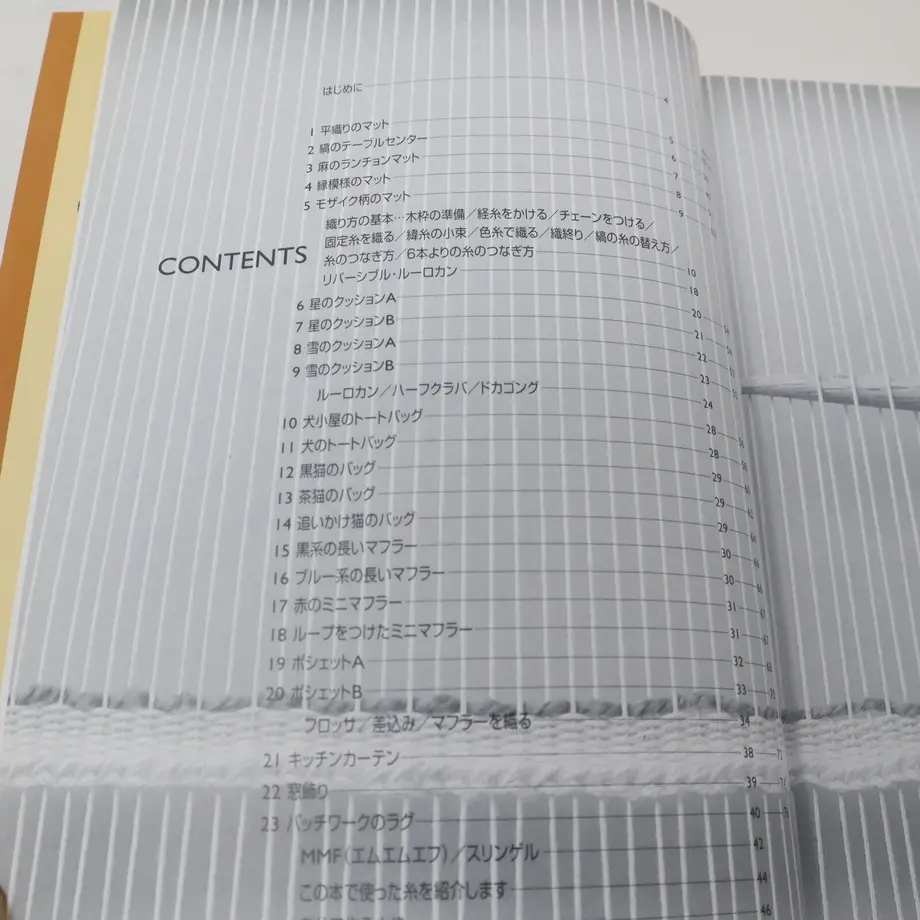 はじめに 4
1 平織りのマット 5
2 縞のテーブルセンター 6
3 麻のランチョンマット 7
4 縁模様のマット 8
5 モザイク柄のマット 9
織り方の基本…木枠の準備／経糸をかける／チェーンをつける／
固定糸を織る／緯糸の小束／色糸で織る／織終り／縞の糸の替え方／
糸のつなぎ方／6本よりの糸のつなぎ方 10
CONTENTS
リバーシブル・ルーロカン 18
6 星のクッションA 20
7 星のクッションB 21
8 雪のクッションA 22
9 雪のクッションB 23
ルーロカン／ハーフクラバ／ドカゴング 24
10 犬小屋のトートバッグ 28
11 犬のトートバッグ 28
12 黒猫のバッグ 29
13 茶猫のバッグ 29
14 追いかけ猫のバッグ 29
15 黒系の長いマフラー 30
16 ブルー系の長いマフラー 30
17 赤のミニマフラー 31
18 ループをつけたミニマフラー 31
19 ポシェットA 32
20 ポシェットB 33
フロッサ／差込み／マフラーを織る 34
21 キッチンカーテン 38
22 窓飾り 39
23 パッチワークのラグ 40
MMF（エムエムエフ）／スリンゲル 42
この本で使った糸を紹介します 44
46